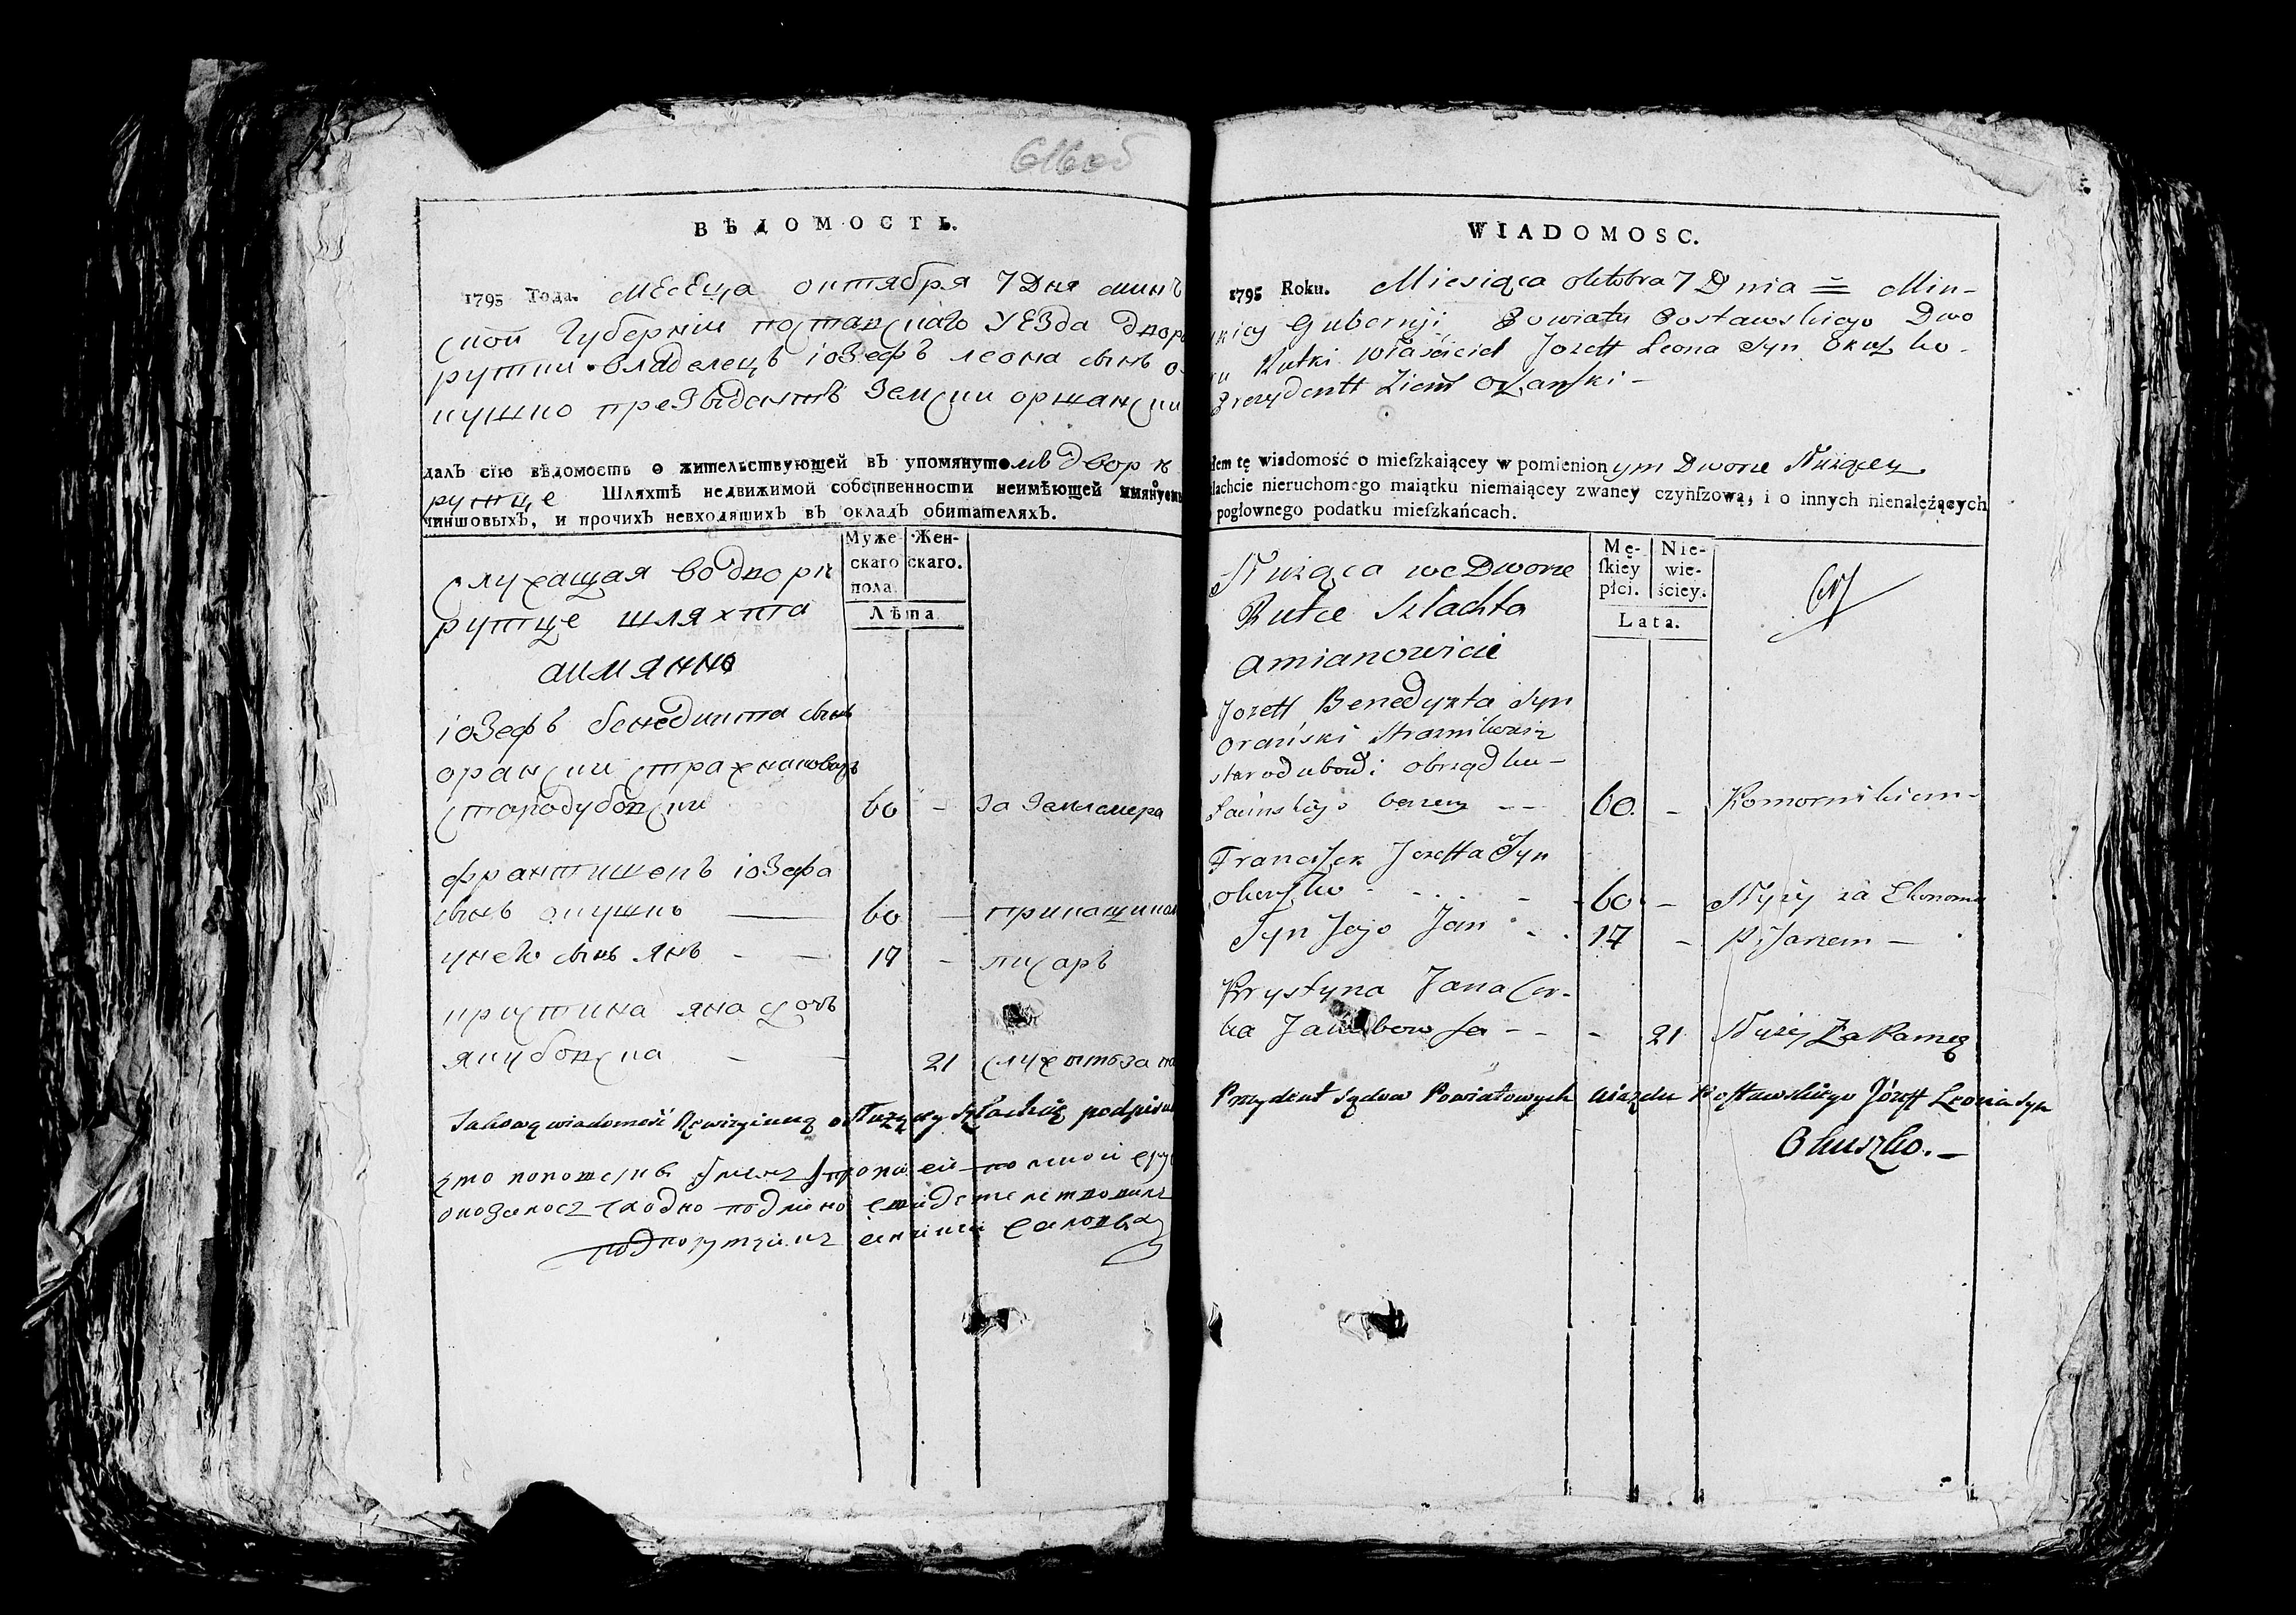 ВѢДОМОСТЬ.
1795 Года. Месеца октября 7 Дня Мин
ской Губернии поставскаго уезда двора
рутки владелецъ іозефъ леона сынъ о
кушко презыдентъ земски оршански
далъ сїю вѣдомость о жительствующей въ упомянутомъ дворѣ
рутце Шляхтѣ недвижимой собственности неимѣющей имянуем
чиншовыхъ, и прочихъ невходящихъ въ окладъ обитателяхъ.
Муже- Жен-
скаго скаго.
пола.
Лѣта
служащая во дворѣ
рутце шляхта
аимянно
іозефъ бенедикта сынъ
орански стражниковичъ
стародубовски 60 - за
францишекъ іозефа
сынъ окушко 60 -
унего сынъ янъ - - 17 - писаръ
кристина яна дочь
якубовска - - 21 служитъ за
Takową wiadomość Rewizyiną o służący Szlachcie podpisu
WIADOMOSC.
1795 Roku. Miesiąca oktobra 7 Dnia = Min-
skiey Gubernji Powiatu Postawskiego Dwo
ru Rutki właściciel Jozeff Leona Syn Okuszko-
Prezydentt Ziems Orszanski -
łem tę wiadomość o mieſzkaiącey w pomienionym Dworze Służącey
lachcie nieruchomego maiątku niemaiącey zwaney czynſzową, i o innych nienależących
pogłownego podatku mieſzkańcach.
Mę- Nie-
ſkiey wie-
płci. ściey.
Lata.
Służąca we Dworze
Rutce Szlachta
amianowicie
Jozeff Benedykta Syn
Orański Straznikowicz
starodubowski obrządku-
Łacinskiego - - 60. - Komornikiem-
Franciszek Jozeffa Syn
okuszko - - 60 - Służy za Ekonoma
Syn Jego Jan - - 17 - Pisarzem -
Krystyna Jana Cor-
ka Jakubowska - - - 21 Służy Za Pannę
Prezydent Sądów Powiatowych Uiazdu Postawskiego Józeff Leona Syn
Okuszko. -